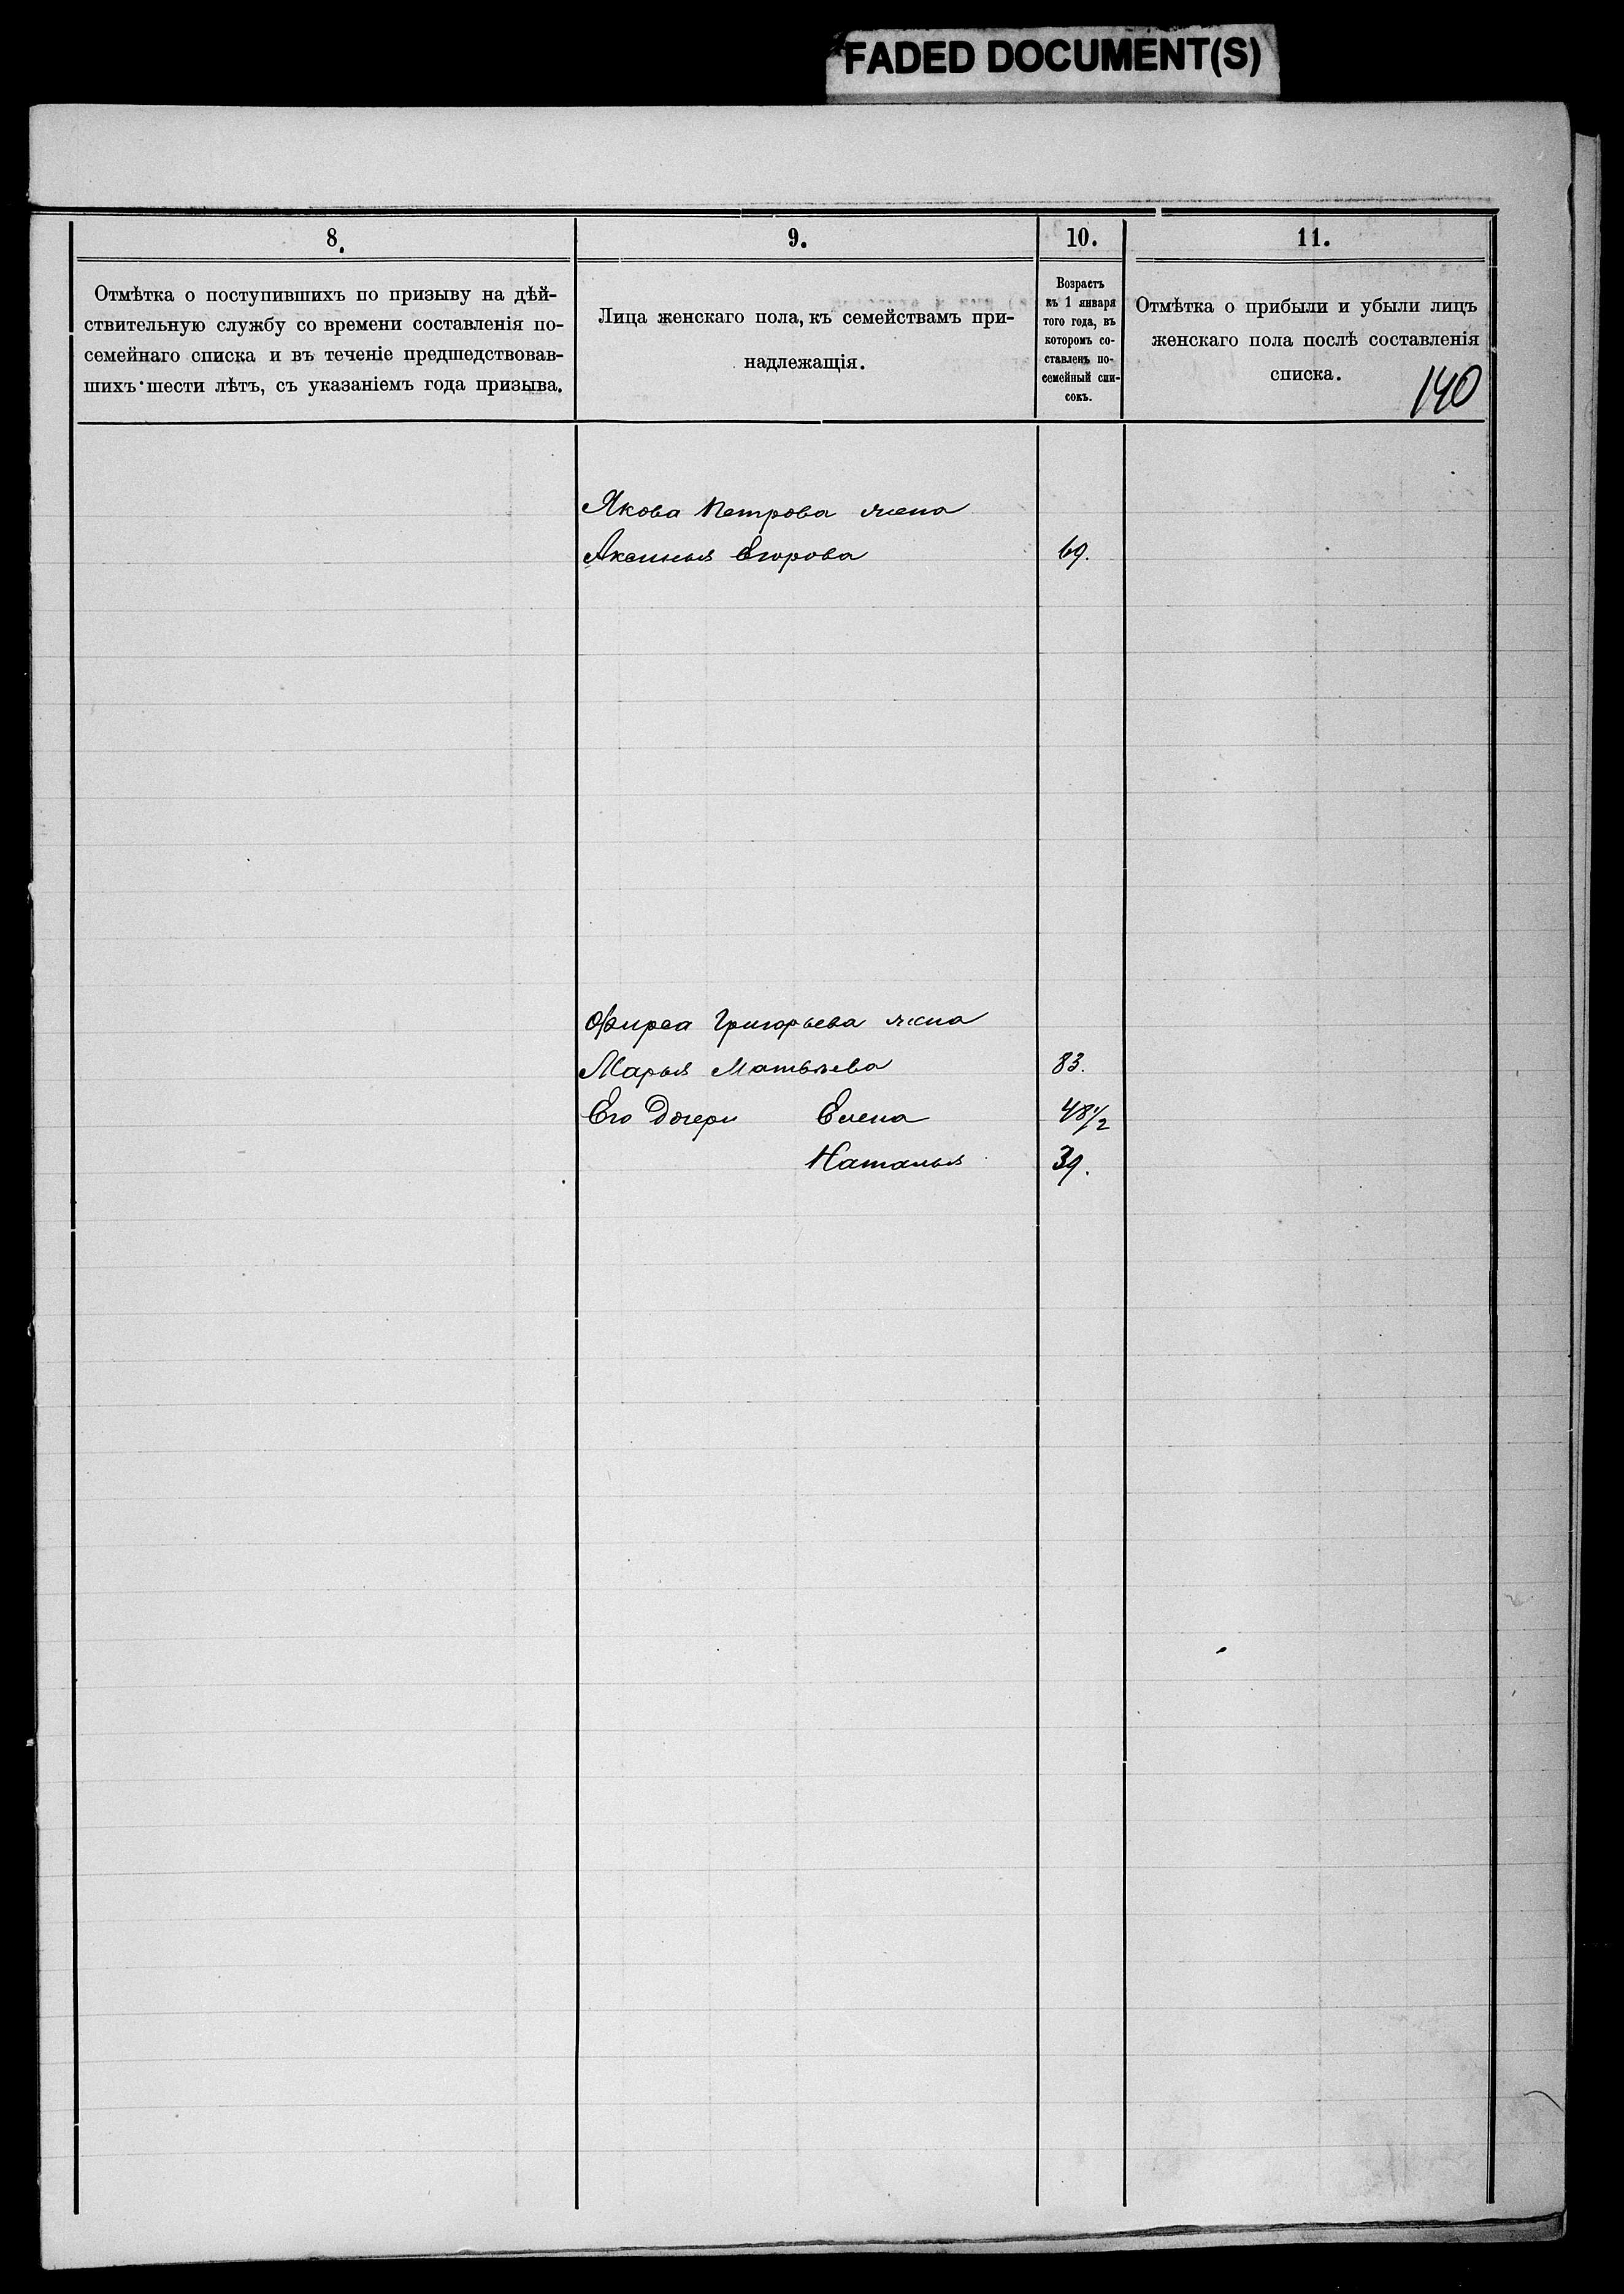 FADED DOCUMENT(S)
8.
Отмѣтка о поступившихъ по призыву на дѣй-
ствительную службу со времени составленія по-
семейнаго списка и въ теченіе предшедствовав-
шихъ шести лѣтъ, съ указаніемъ года призыва.
9.
Лица женскаго пола, къ семействамъ при-
надлежащія.
10.
Возрастъ
къ 1 января
того года, въ
которомъ со-
ставленъ по-
семейный спи-
сокъ.
11.
Отмѣтка о прибыли и убыли лицъ
женскаго пола послѣ составленія
списка.
140
Якова Петрова жена
Аксинья Егорова 69.
Фирса Григорьева жена
Марья Матвѣева 83.
Его дочери Елена 48 1/2
Наталья 39.